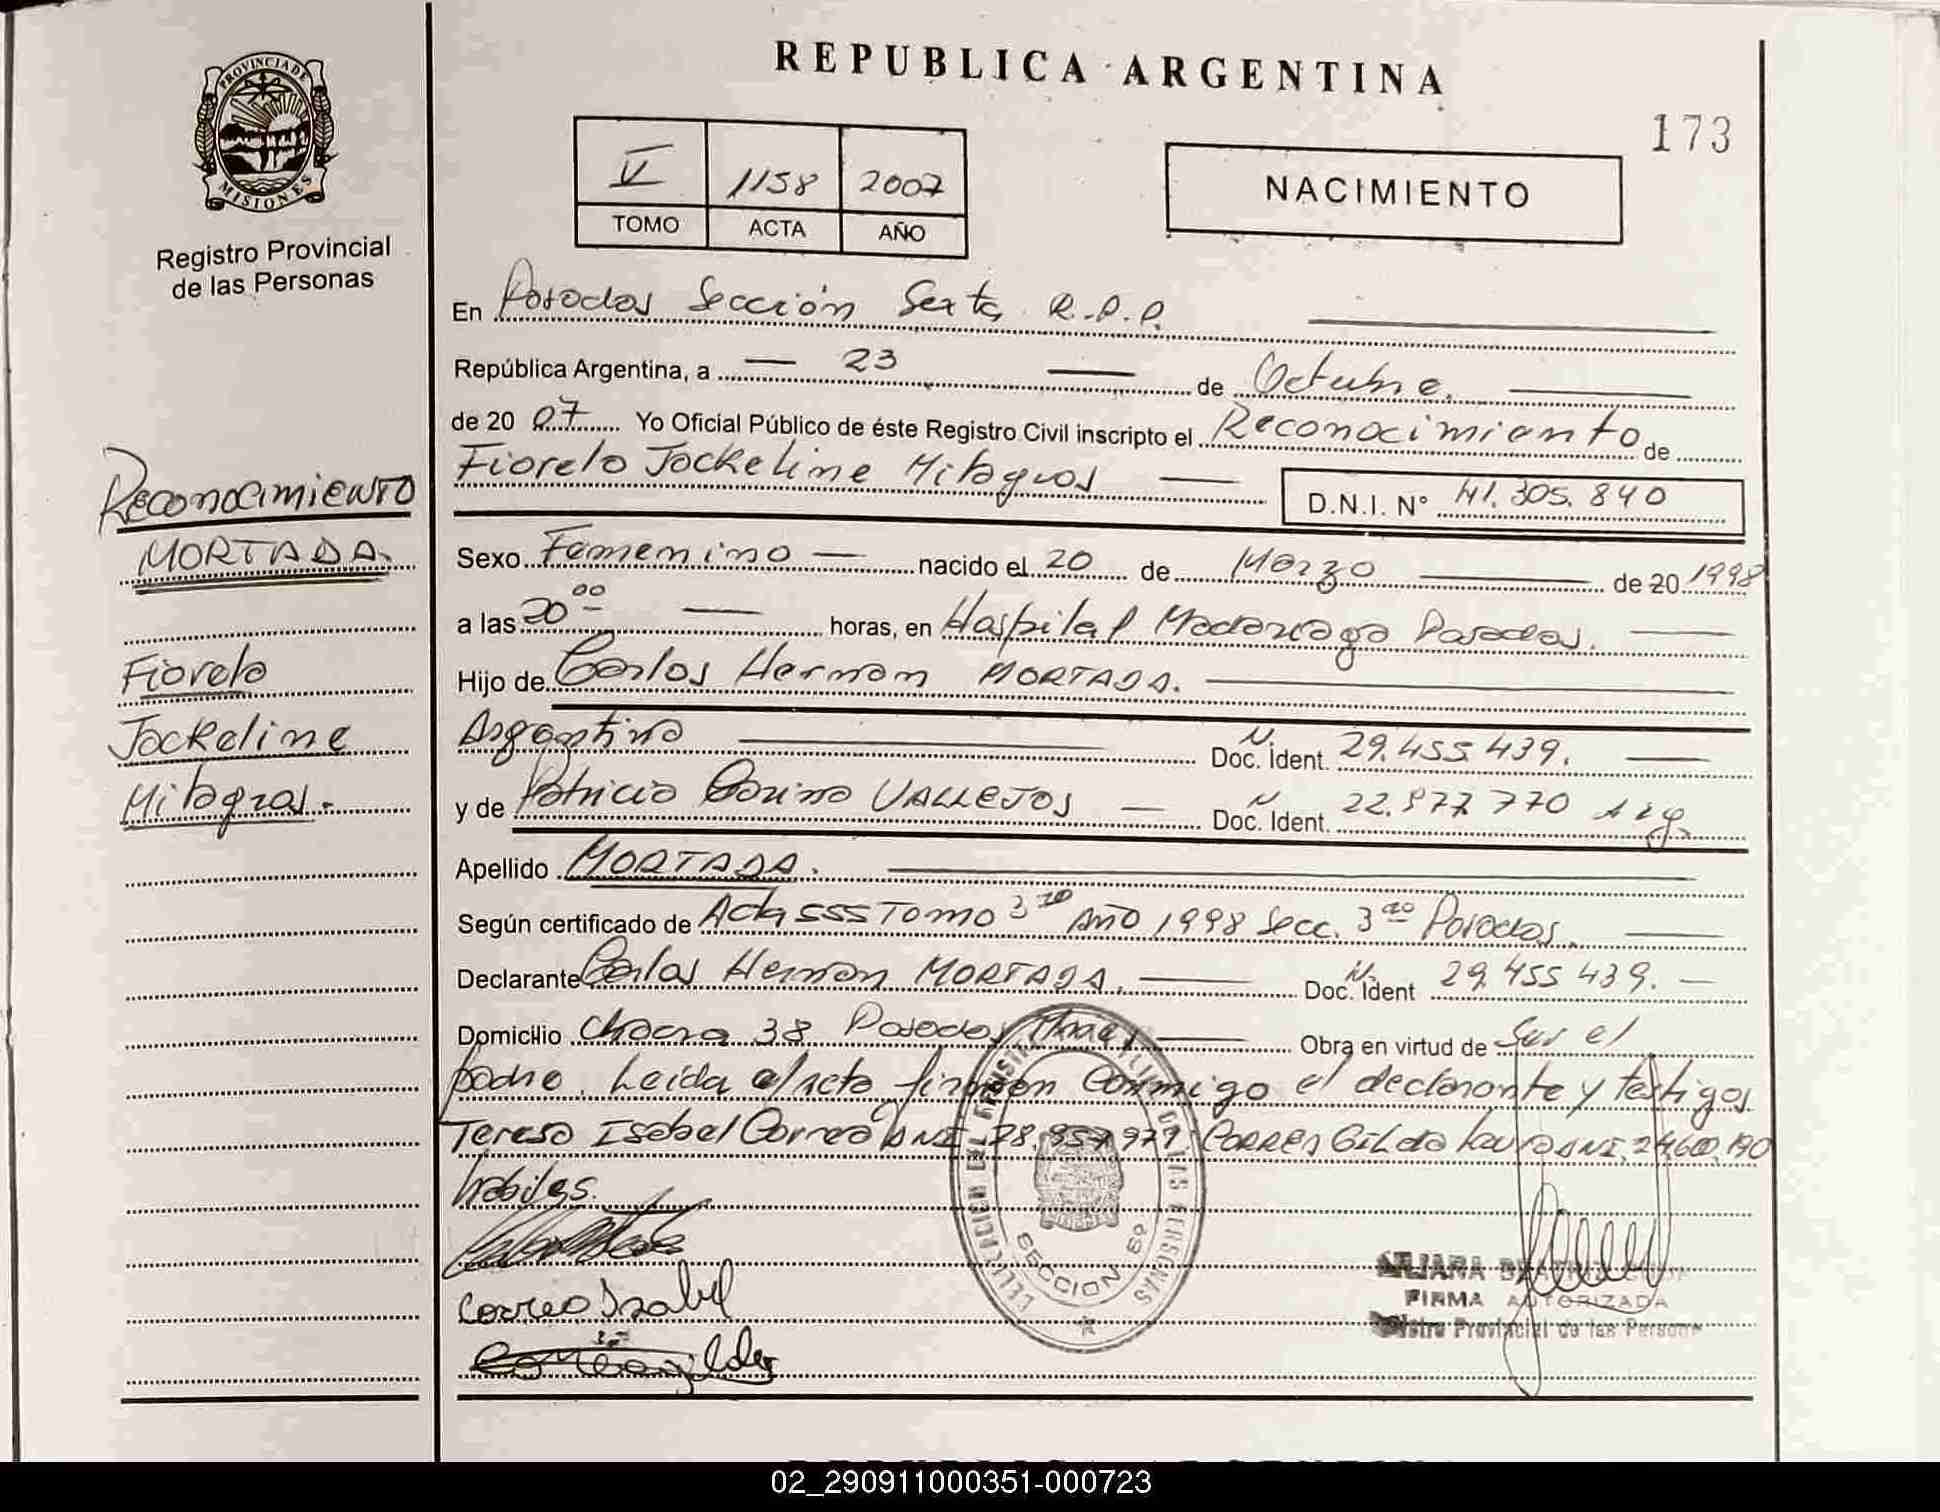 REPUBLICA ARGENTINA
173
PROVINCIA DE
MISIONES
Registro Provincial
de las Personas
V 1158 2007
TOMO ACTA AÑO
NACIMIENTO
En Posadas Sección Sexta R.P.P.
República Argentina, a 23 de Octubre.
de 2007 Yo Oficial Público de éste Registro Civil inscripto el Reconocimiento de
Fiorela Jackeline Milagros
D.N.I. N° 41.305.840
Reconocimiento
MORTADA.
Fiorela
Jackeline
Milagros.
Sexo Femenino nacido el 20 de Marzo de 20 1998
a las 20 00 horas, en Hospital Madariaga Posadas.
Hijo de Carlos Hernan MORTADA.
Argentino N. Doc. Ident. 29.455.439.
y de Patricia Corina VALLEJOS N Doc. Ident. 22.877.770 Arg.
Apellido MORTADA.
Según certificado de Acta 555 Tomo 3 ro Año 1998 Secc. 3 ra Posadas.
Declarante Carlos Hernan MORTADA. N. Doc. Ident 29.455 439.
Domicilio Chacra 38 Posadas Mnes Obra en virtud de Ser el
padre. Leida el acta firman conmigo el declarante y testigos
Teresa Isabel Correa DNI 28.957.979. CORREA Gilda Laura DNI. 24.600.190
habiles.
Correa Isabel
SECCION 6º
FIRMA AUTORIZADA
Registro Provincial de las Personas
02_290911000351-000723